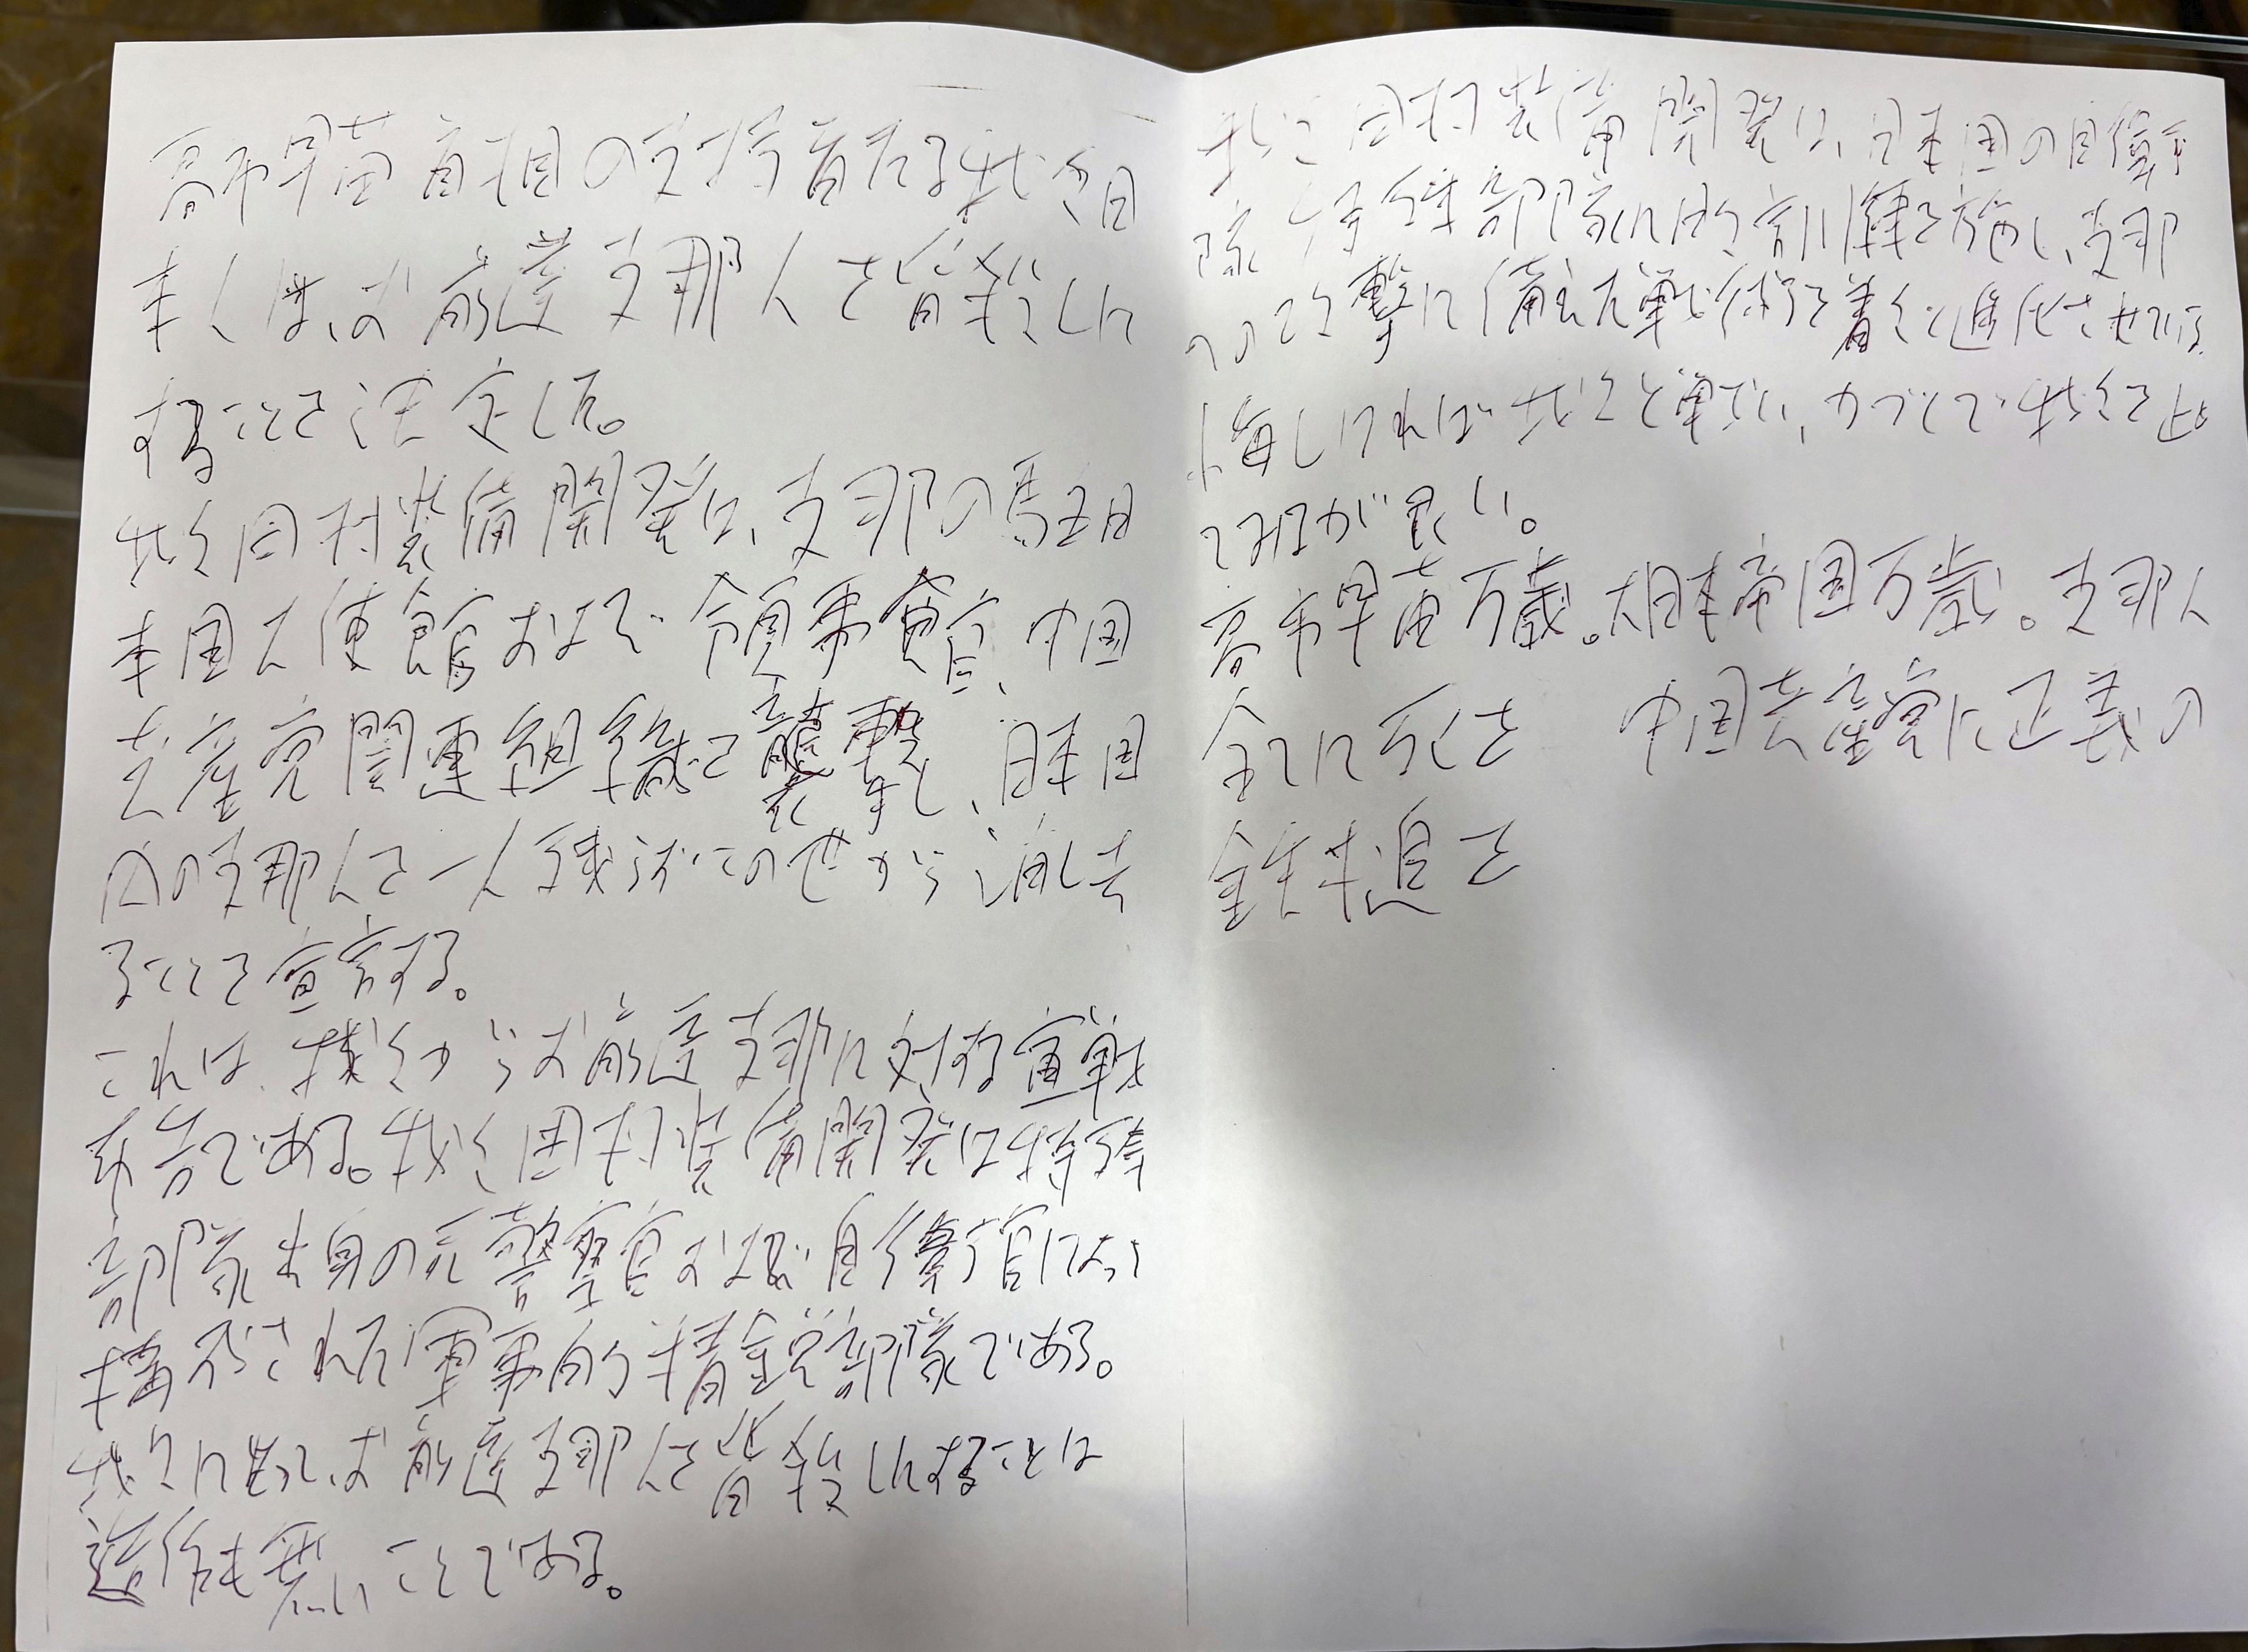 高市早苗首相の支持者たる我々日
本人は、お前達支那人を皆殺しに
することを決定した。
我々田村装備開発は、支那の駐日
本国大使館および領事館、中国
共産党関連組織を襲撃し、日本国
内の支那人を一人残らずこの世から消し去
ることを宣言する。
これは、我々からお前達支那に対する宣戦
布告である。我々田村装備開発は特殊
部隊出身の元警察官および自衛官によって
構成された軍事的精鋭部隊である。
我々に

お前達支那人を皆殺しにすることは
造作も無いことである。
我々田村装備開発は、日本国の自衛
隊特殊部隊に訓練を施し、支那
への攻撃に備えた戦術を着々と進化させている。
悔しければ我々と戦い、力づくで我々を止め
てみるが良い。
高市早苗万歳。大日本帝国万歳。支那人
全てに死を 中国共産党に正義の
鉄槌を